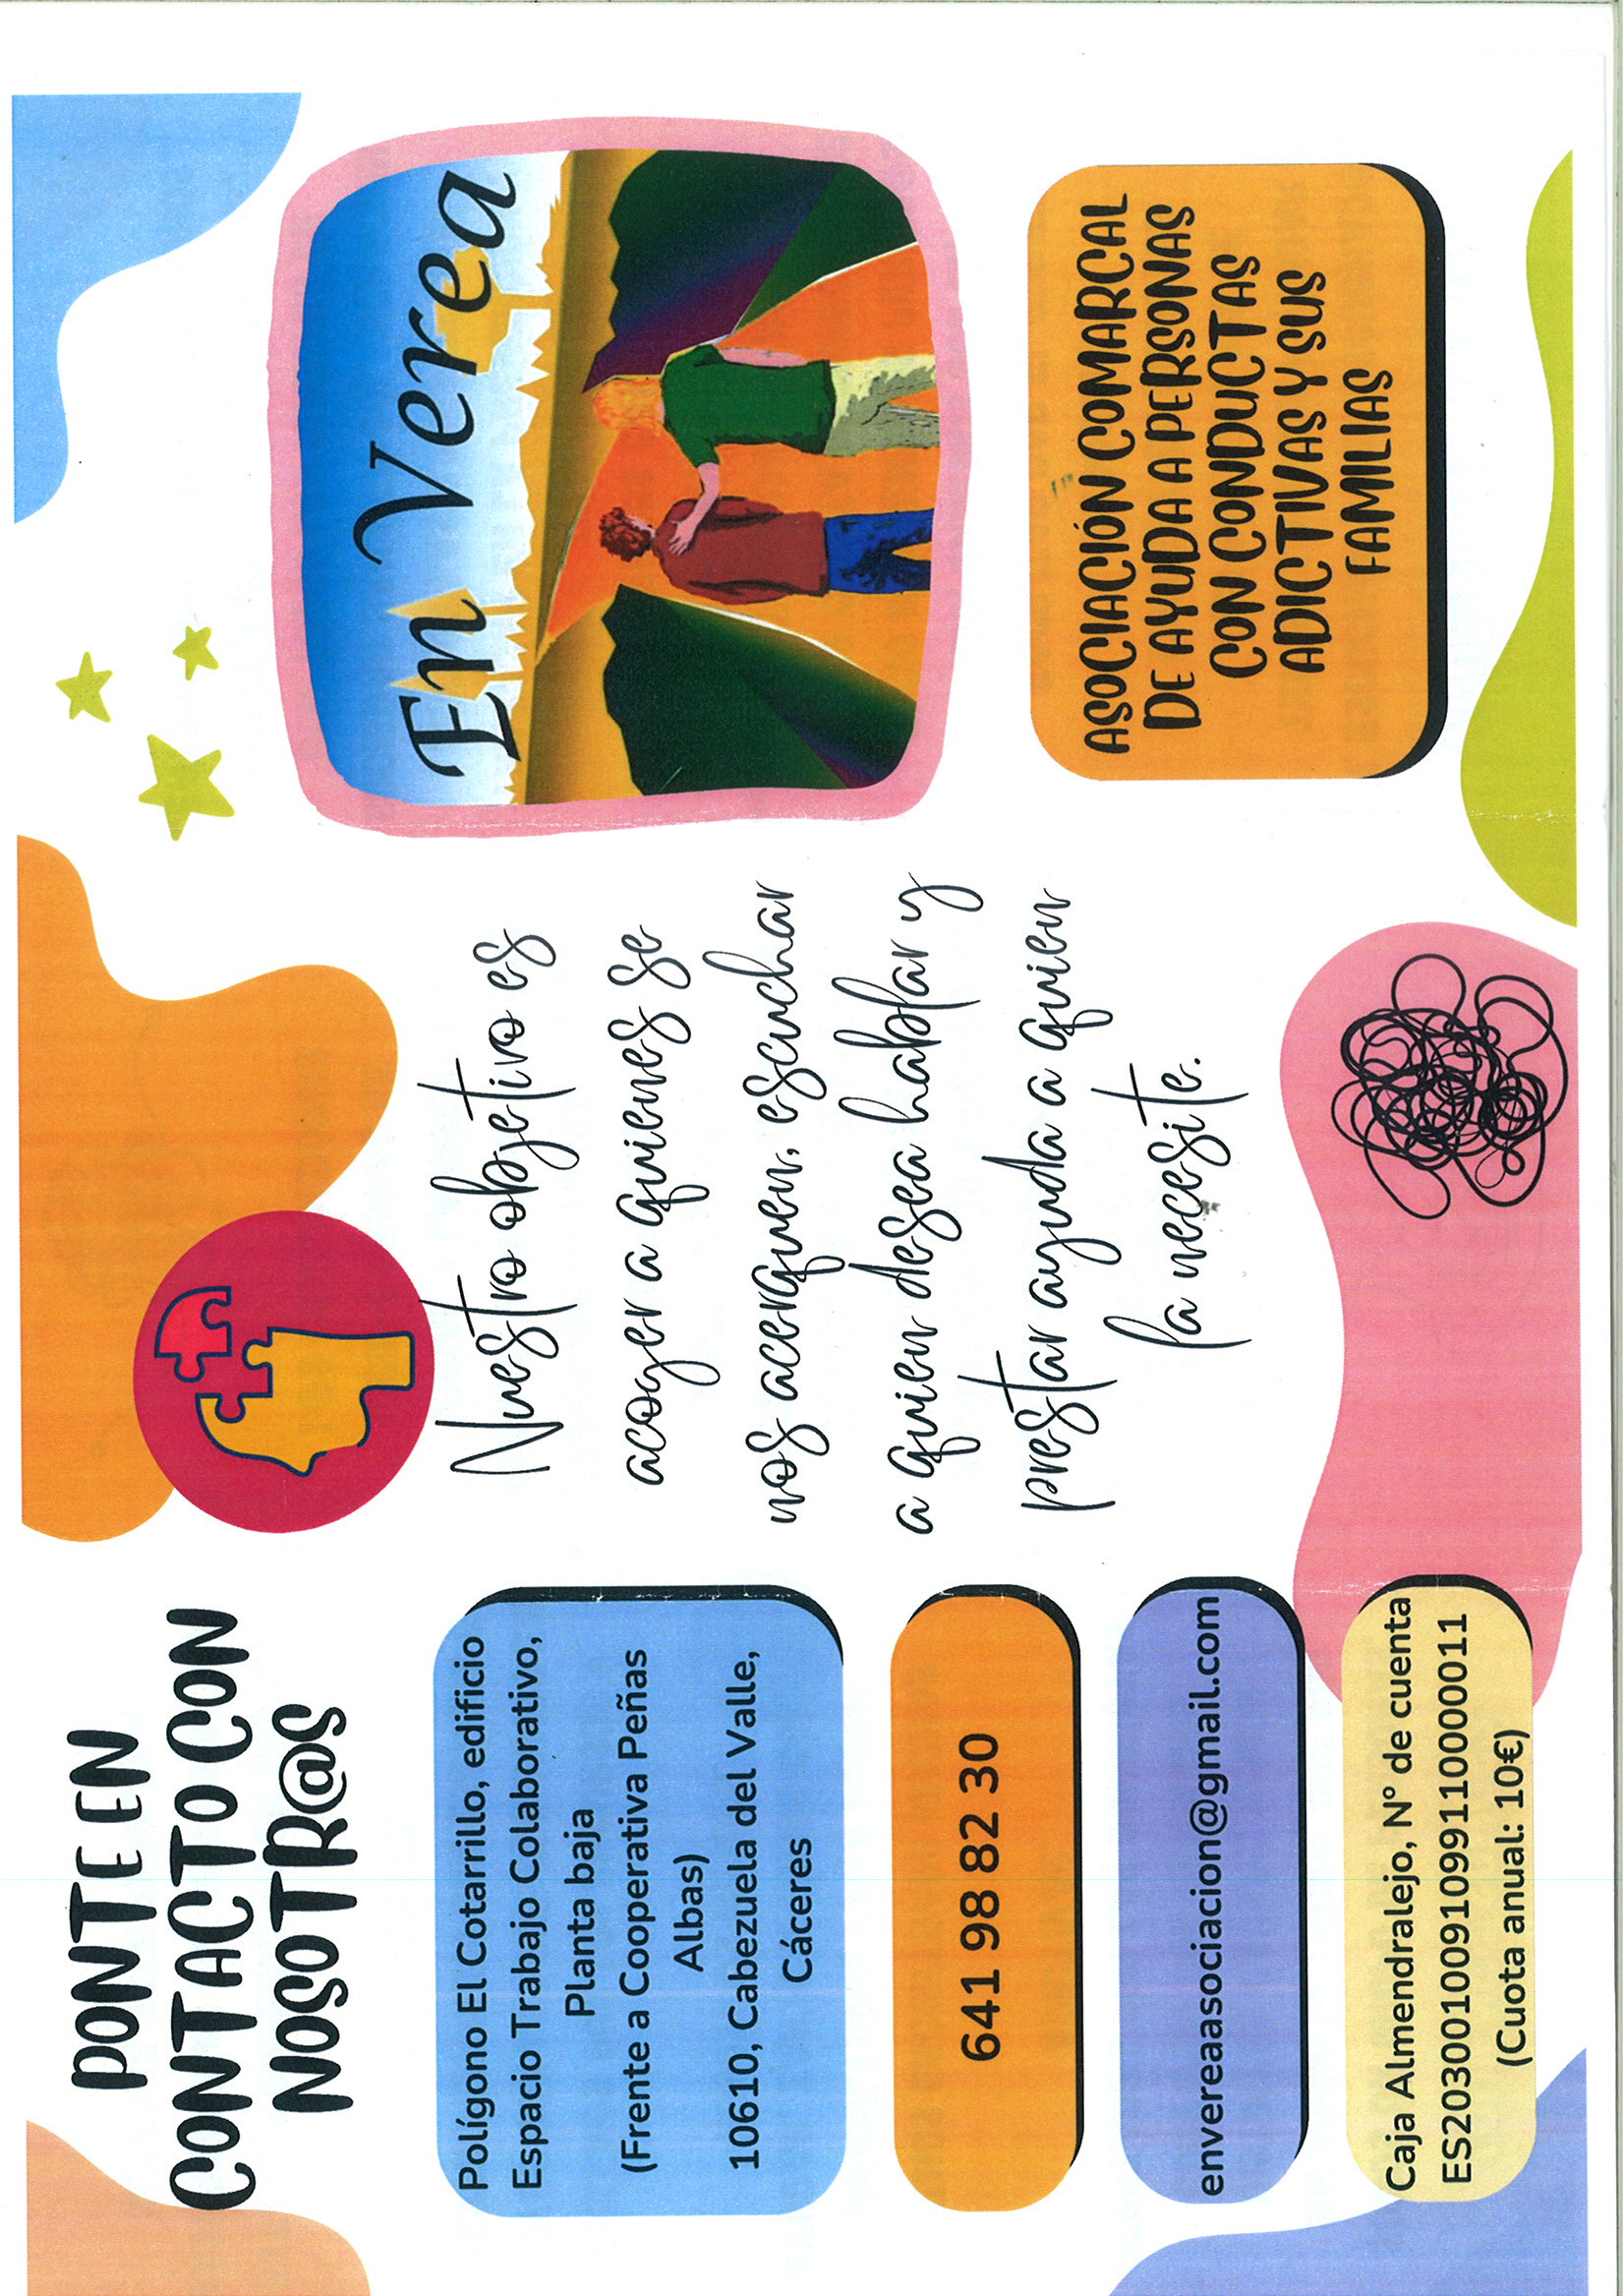 PONTE EN
CONTACTO CON
NOSOTR@S
Polígono El Cotarrillo, edificio
Espacio Trabajo Colaborativo,
Planta baja
(Frente a Cooperativa Peñas
Albas)
10610, Cabezuela del Valle,
Cáceres
641 98 82 30
envereaasociacion@gmail.com
Caja Almendralejo, N° de cuenta
ES2030010091099110000011
(Cuota anual: 10€)
Nuestro objetivo es
acoger a quienes se
nos acerquen, escuchar
a quien desea hablar y
prestar ayuda a quien
la necesite.
En Verea
ASOCIACIÓN COMARCAL
DE AYUDA A PERSONAS
CON CONDUCTAS
ADICTIVAS Y SUS
FAMILIAS